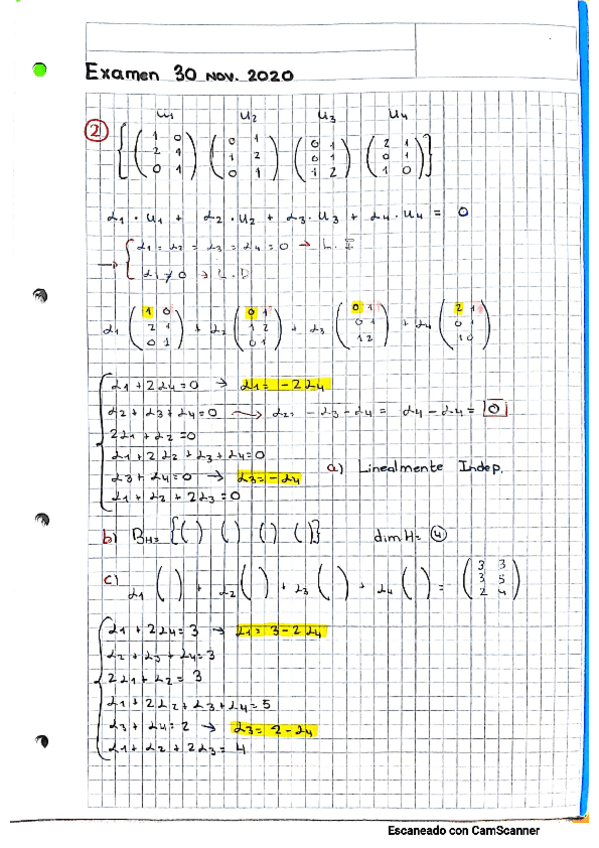 Examen 30 NOV. 2020
u1 u2 u3 u4
② { ( 1 0 / 2 1 / 0 1 ) ( 0 1 / 1 2 / 0 1 ) ( 0 1 / 0 1 / 1 2 ) ( 2 1 / 0 1 / 1 0 ) }
α1 · u1 + α2 · u2 + α3 · u3 + α4 · u4 = 0
α1 = α2 = α3 = α4 = 0 → L. I
→ { αi ≠ 0 → L. D
α1 ( 1 0 / 2 1 / 0 1 ) + α2 ( 0 1 / 1 2 / 0 1 ) + α3 ( 0 1 / 0 1 / 1 2 ) + α4 ( 2 1 / 0 1 / 1 0 )
α1 + 2α4 = 0 → α1 = -2α4
α2 + α3 + α4 = 0 → α2 = -α3 - α4 = α4 - α4 = 0
2α1 + α2 = 0
α1 + 2α2 + α3 + α4 = 0
α3 + α4 = 0 → α3 = -α4
a) Linealmente Indep.
α1 + α2 + 2α3 = 0
b) BH = { ( ) ( ) ( ) ( ) } dim H = ④
c) α1 ( ) + α2 ( ) + α3 ( ) + α4 ( ) = ( 3 3 / 3 5 / 2 4 )
α1 + 2α4 = 3 → α1 = 3 - 2α4
α2 + α3 + α4 = 3
2α1 + α2 = 3
α1 + 2α2 + α3 + α4 = 5
α3 + α4 = 2 → α3 = 2 - α4
α1 + α2 + 2α3 = 4
Escaneado con CamScanner